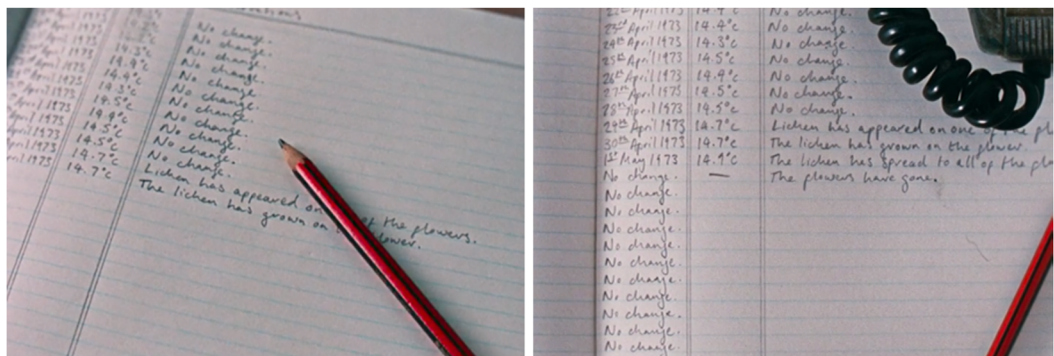 No change.
No change.
No change.
14.3°c No change.
April 14.4°c No change.
April 1973 14.4°c No change.
April 1973 14.3°c No change.
April 1973 14.5°c No change.
April 1973 14.4°c No change.
April 1973 14.5°c No change.
April 1973 14.5°c No change.
April 1973 14.7°c Lichen has appeared on of the flowers.
1973 14.7°c The lichen has grown on flower.
April 1973 No change.
23rd April 1973 14.4°c No change.
24th April 1973 14.3°c No change.
25th April 1973 14.5°c No change.
26th April 1973 14.4°c No change.
27th April 1973 14.5°c No change.
28th April 1973 14.5°c No change.
29th April 1973 14.7°c Lichen has appeared on one of the pl
30th April 1973 14.7°c The lichen has grown on the flower.
1st May 1973 14.9°c The lichen has spread to all of the
No change. — The flowers have gone.
No change.
No change.
No change.
No change.
No change.
No change.
No change.
No change.
No change.
No change.